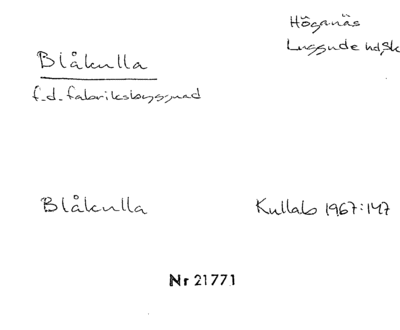 Höganäs
Luggude hd, Sk
Blåkulla
f.d. fabriksbyggnad
Blåkulla
Kullab 1967:147
Nr 21771